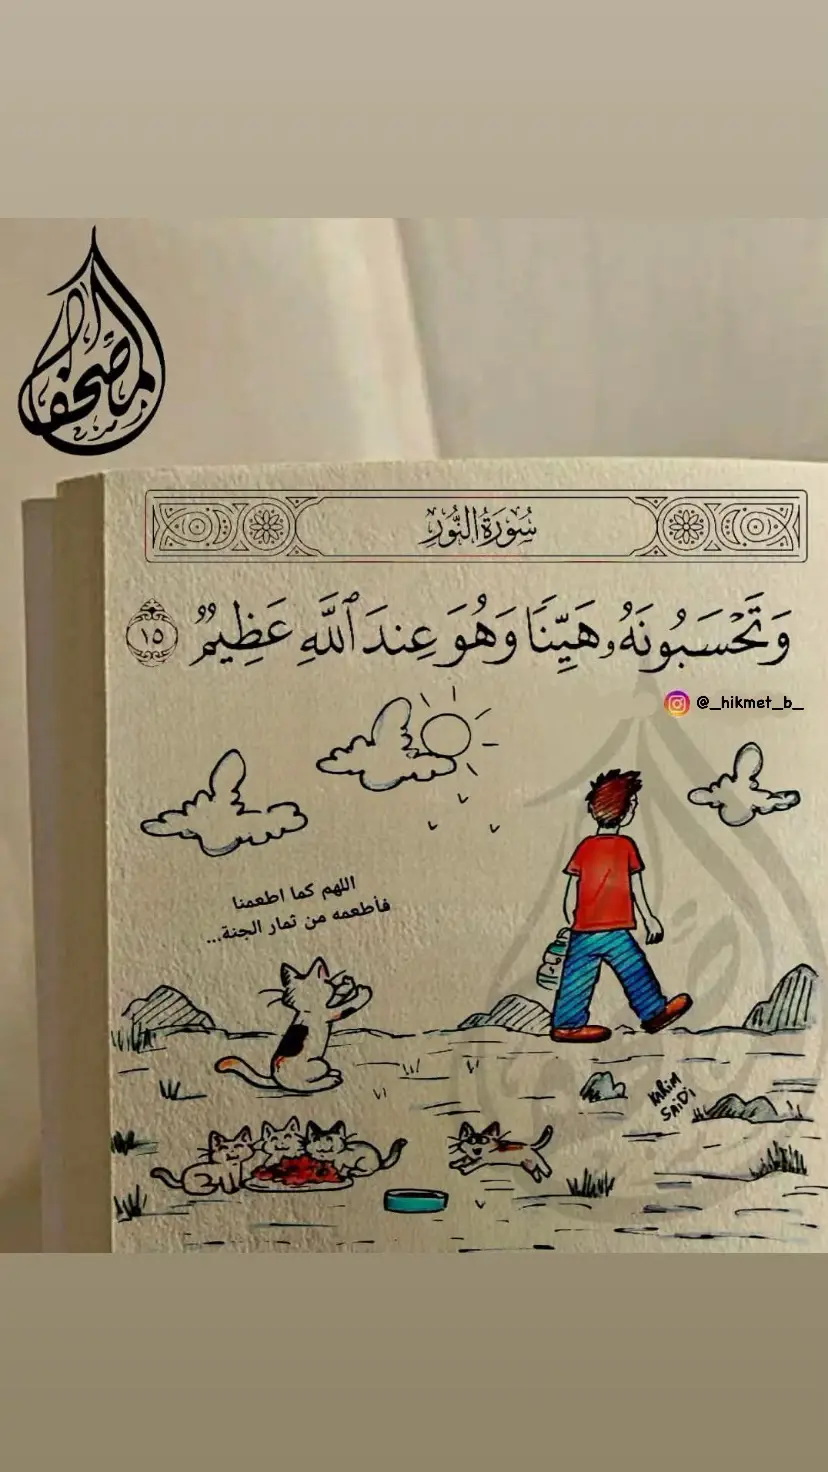 المصحف
سُورَةُ النُّورِ
وَتَحْسَبُونَهُۥ هَيِّنًا وَهُوَ عِندَ ٱللَّهِ عَظِيمٌ ١٥
@_hikmet_b_
اللهم كما اطعمنا
فأطعمه من ثمار الجنة...
KARIM
SAIDI